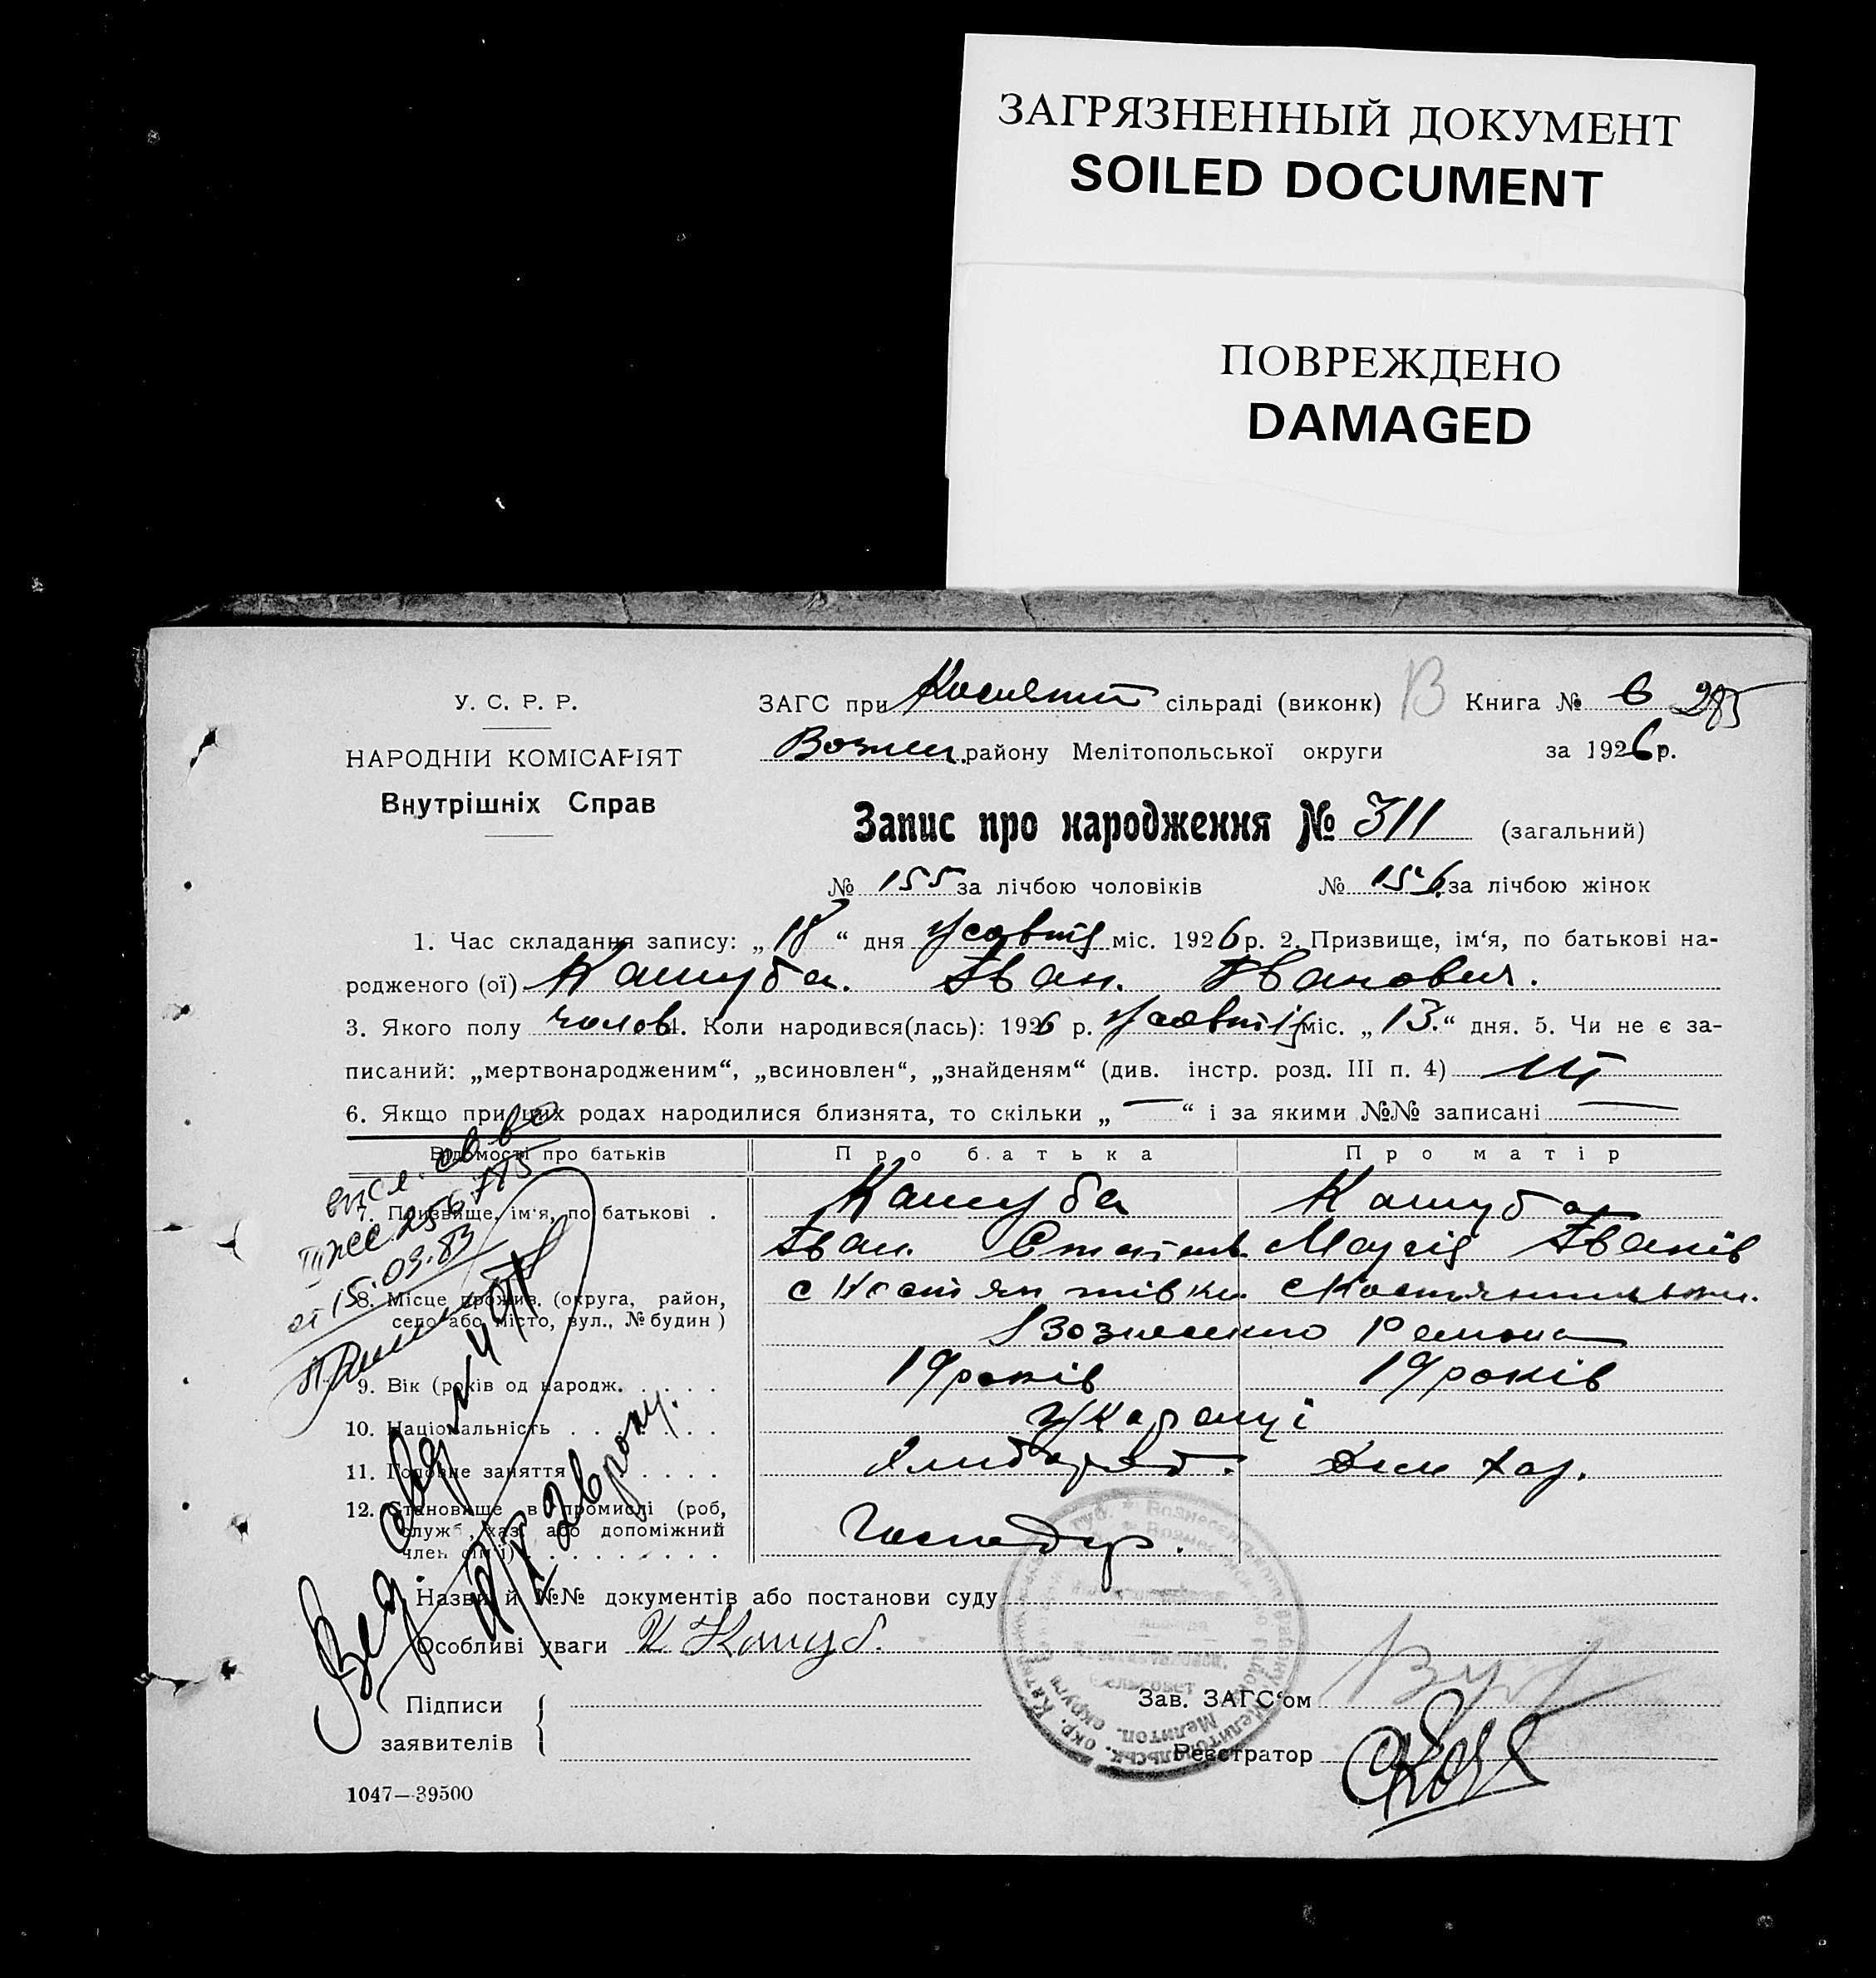 ЗАГРЯЗНЕННЫЙ ДОКУМЕНТ
SOILED DOCUMENT
ПОВРЕЖДЕНО
DAMAGED
У. С. Р. Р.
НАРОДНІЙ КОМІСАРІЯТ
Внутрішніх Справ
ЗАГС при сільраді (виконк) В Книга № 6 285
району Мелітопольської округи за 1926 р.
Запис про народження № 311 (загальний)
№ 155 за лічбою чоловіків № 156 за лічбою жінок
1. Час складання запису: „18“ дня жовтня міс. 1926 р. 2. Призвище, ім‘я, по батькові на-
родженого (ої) Кашуба. Іван. Іванович.
3. Якого полу чолов 4. Коли народився(лась): 1926 р. жовтня міс. „13.“ дня. 5. Чи не є за-
писаний: „мертвонародженим“, „всиновлен“, „знайденям“ (див. інстр. розд. III п. 4)
6. Якщо при цих родах народилися близнята, то скільки „—“ і за якими №№ записані —
Відомості про батьків Про батька Про матір
7. Призвище, ім‘я, по батькові . Кашуба Кашуба
Іван Марія Іванів
8. Місце прожив. (округа, район, с Костянтівки
село або місто, вул., № будин)
9. Вік (років од народж. 19 років 19 років
10. Національність Українці
11. Головне заняття Хлібороб. Дом хаз.
12. Становище в промислі (роб, Господар.
служб, хаз. або допоміжний
член сім‘ї)
Назви й №№ документів або постанови суду
Особливі уваги И Кашуб.
Підписи
заявителів
Зав. ЗАГС‘ом
Реєстратор
1047—39500
от 15.03.83